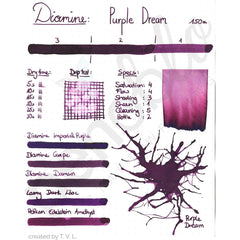 Diamine: Purple Dream
150m
3 2 1
Drytime: Dip test: Specs:
5s
10s
15s
20s
Saturation: 4
Flow: 4
Shading: 3
Sheen: 1
Cleaning: 5
Bottle: 2
Diamine Imperial Purple
Diamine Grape
Diamine Damson
Lamy Dark Lilac
Pelikan Edelstein Amethyst
Purple
Dream
created by T.V.L.